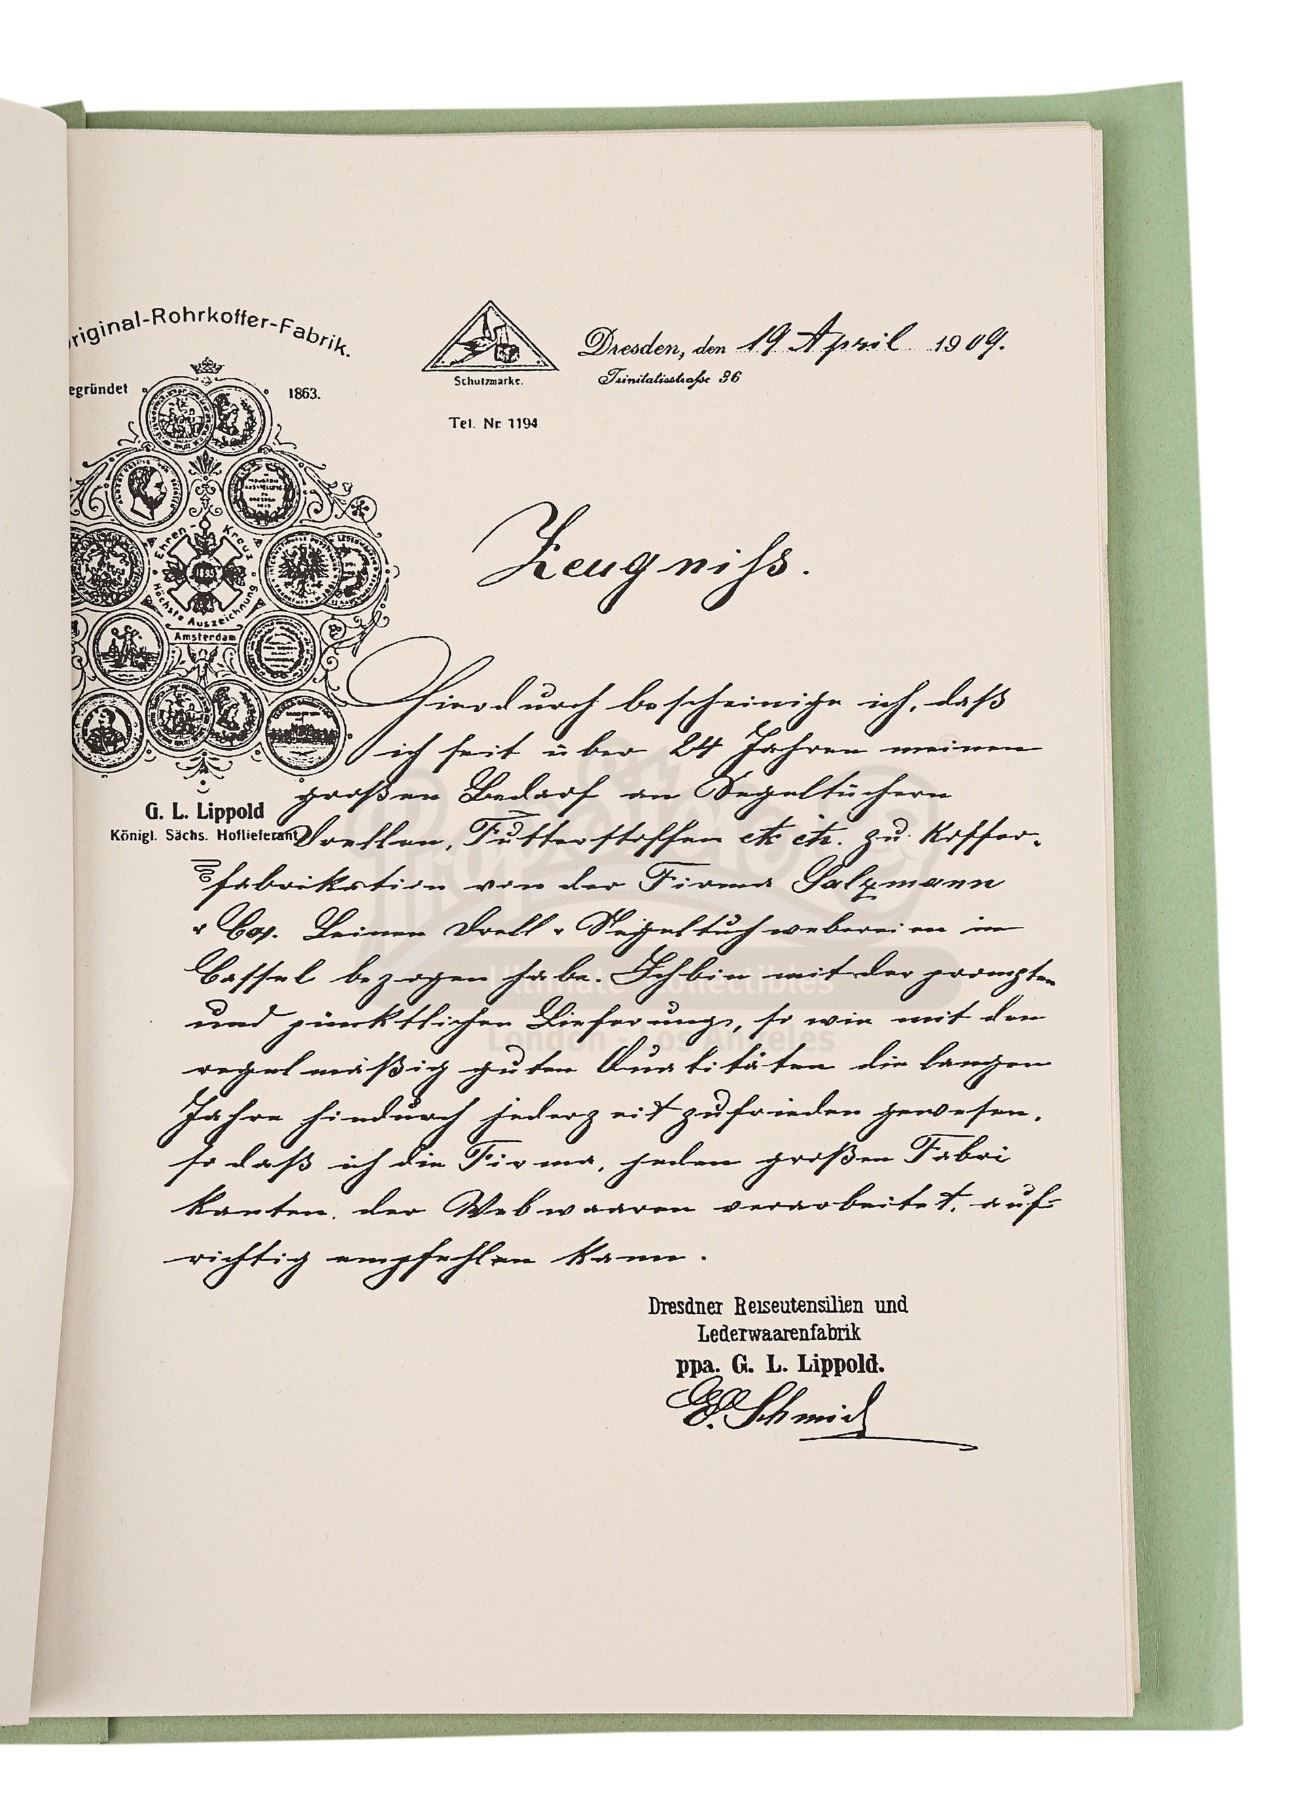 riginal-Rohrkoffer-Fabrik.
egründet 1863.
Ehren-Kreuz
1895
Höchste Auszeichnung
Amsterdam
G. L. Lippold
Königl. Sächs. Hoflieferant
Schutzmarke.
Tel. Nr. 1194
Dresden, den 19 April 1909.
Trinitatisstraße 36
Zeugniss.
Hierdurch bescheinige ich, daß
ich seit über 24 Jahren meinen
großen Bedarf an Segeltüchern
Drellen, Futterstoffen etc etc. zu Koffer-
fabrikation von der Firma Salzmann
& Coy. Leinen Drell & Segeltuchwebereien in
Cassel bezogen habe. Ich bin mit der prompten
und pünktlichen Lieferung, so wie mit den
regelmäßig guten Qualitäten die langen
Jahre hindurch jederzeit zufrieden gewesen,
so daß ich die Firma, jeden großen Fabri
kanten, der Webwaaren verarbeitet, auf-
richtig empfehlen kann.
Dresdner Reiseutensilien und
Lederwaarenfabrik
ppa. G. L. Lippold.
E. Schmid
Prop Store
Ultimate Collectibles
London - Los Angeles